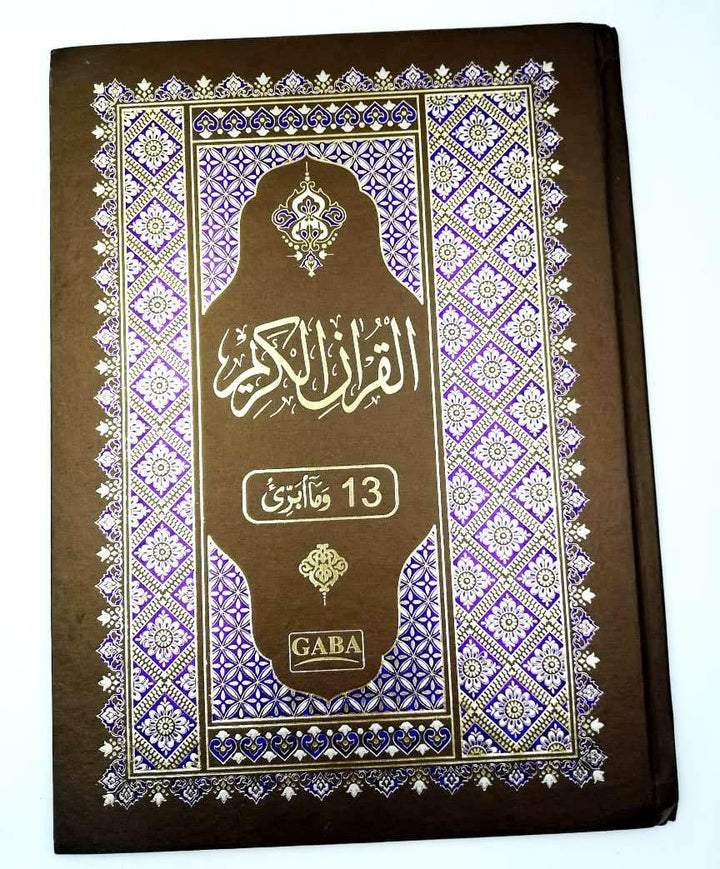 القرآن الكريم
13 وَمَا أُبَرِّئُ
GABA